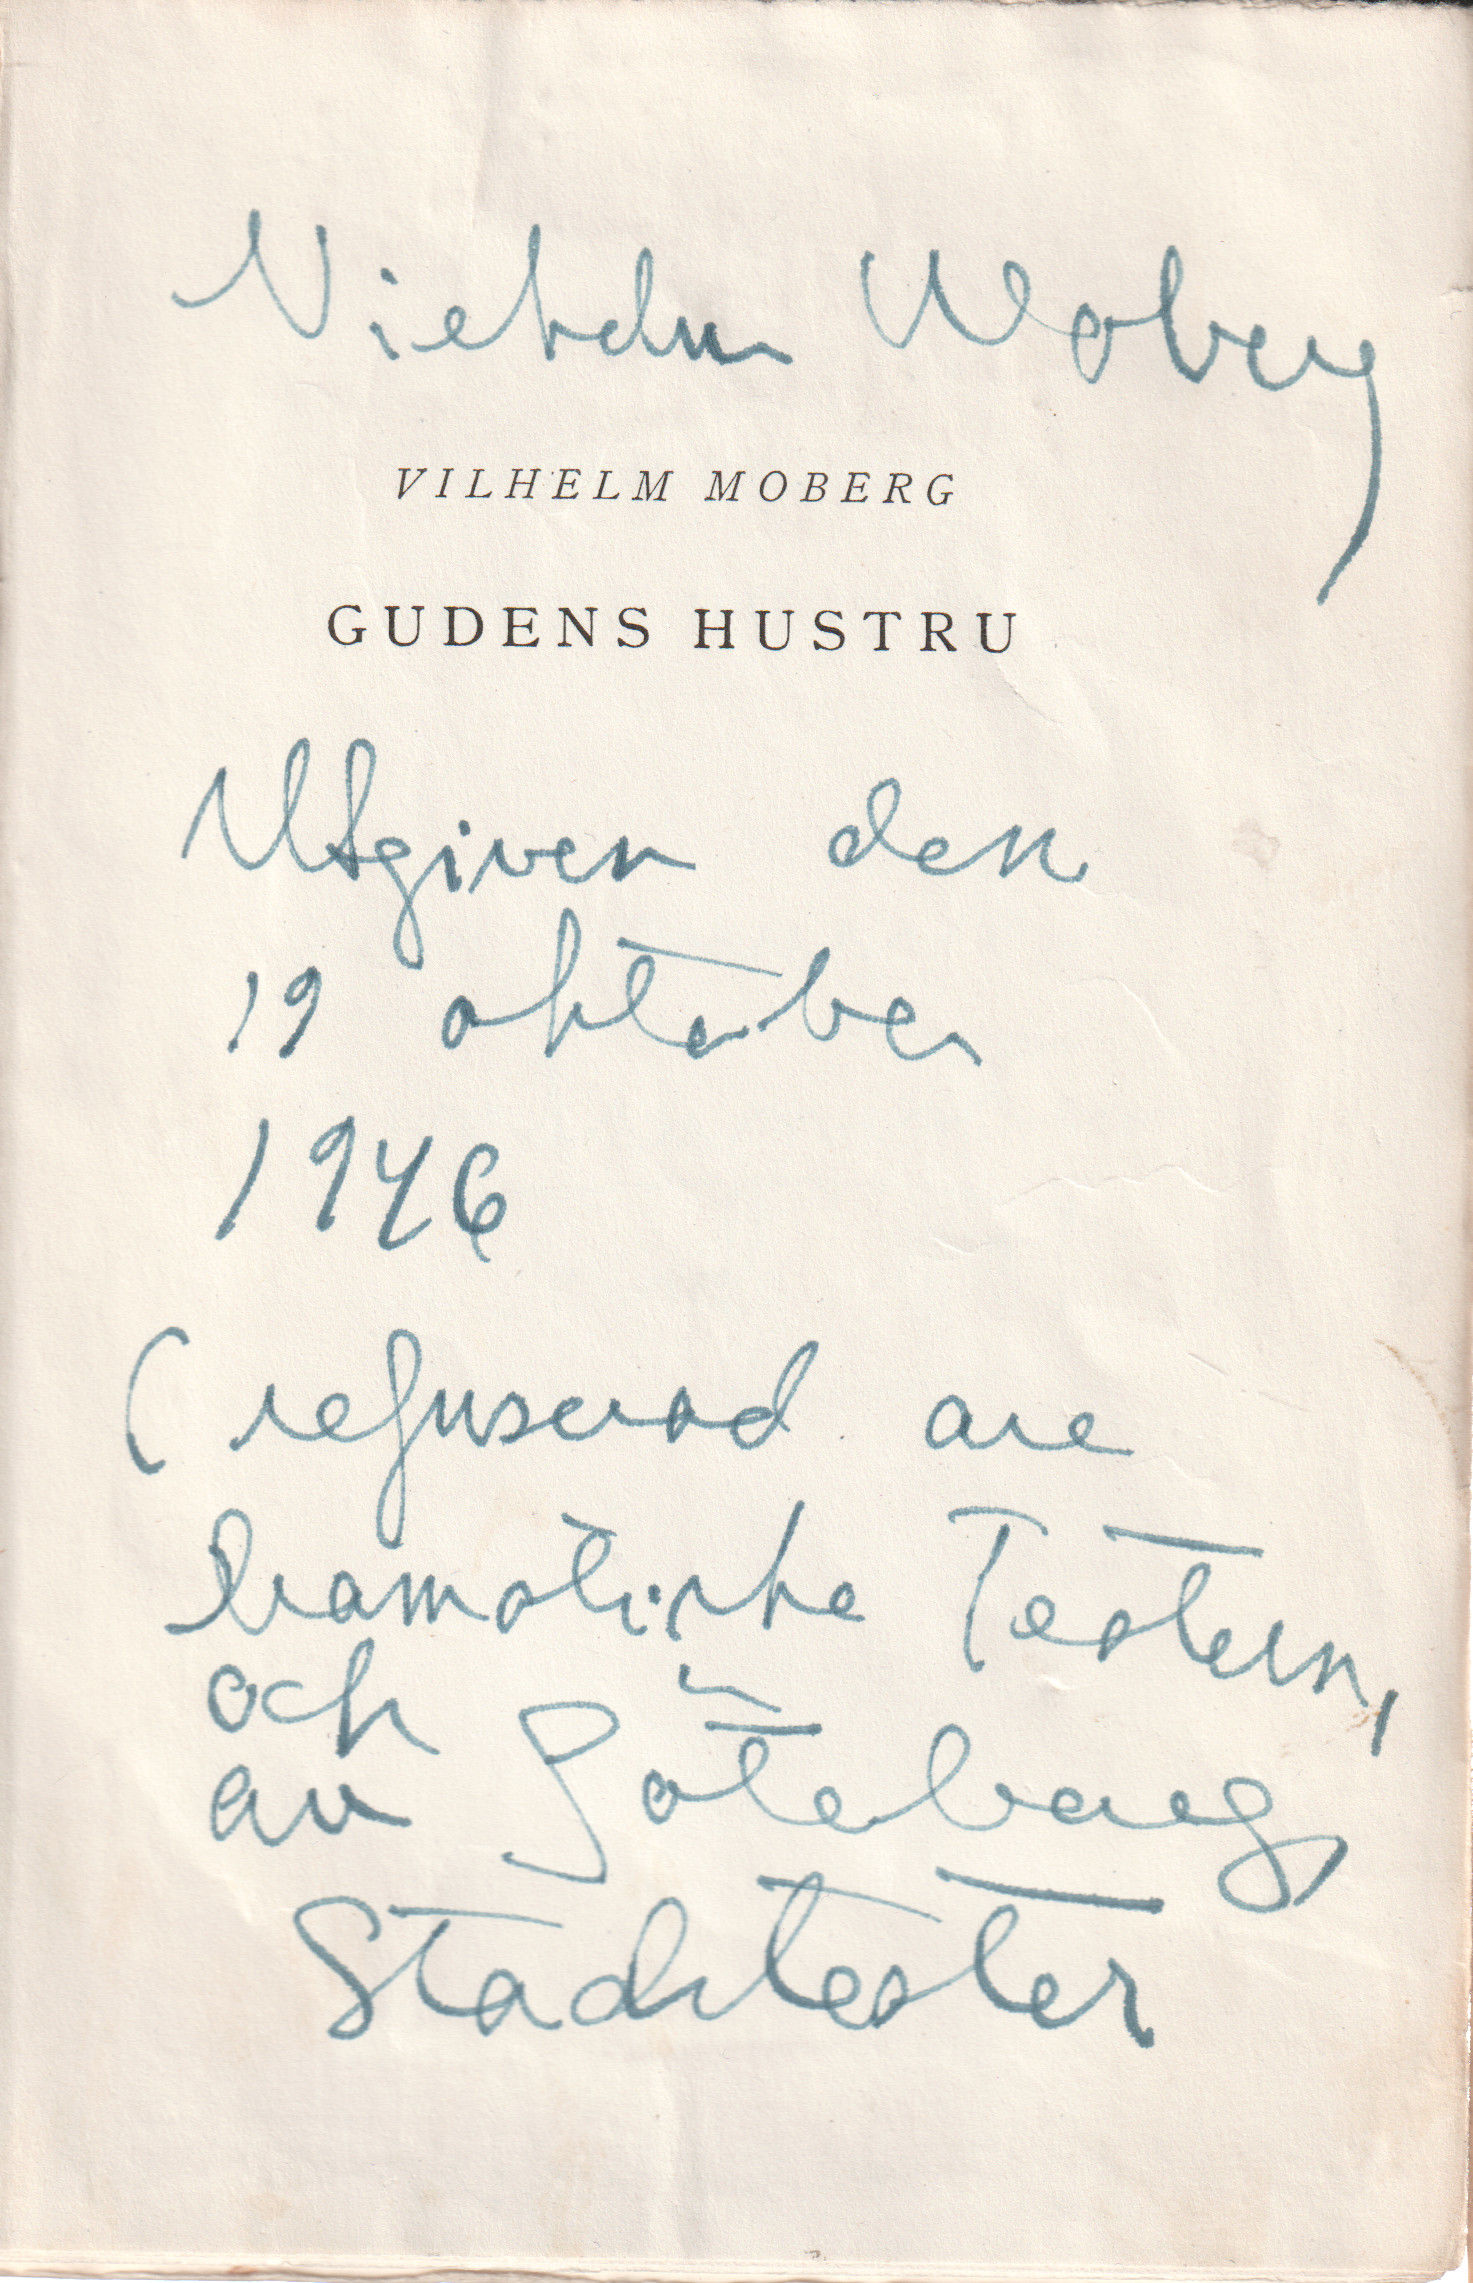 Vilhelm Moberg
VILHELM MOBERG
GUDENS HUSTRU
Utgiven den
19 oktober
1946
(refuserad av
Dramatiska Teatern,
och
av Göteborgs
Stadsteater